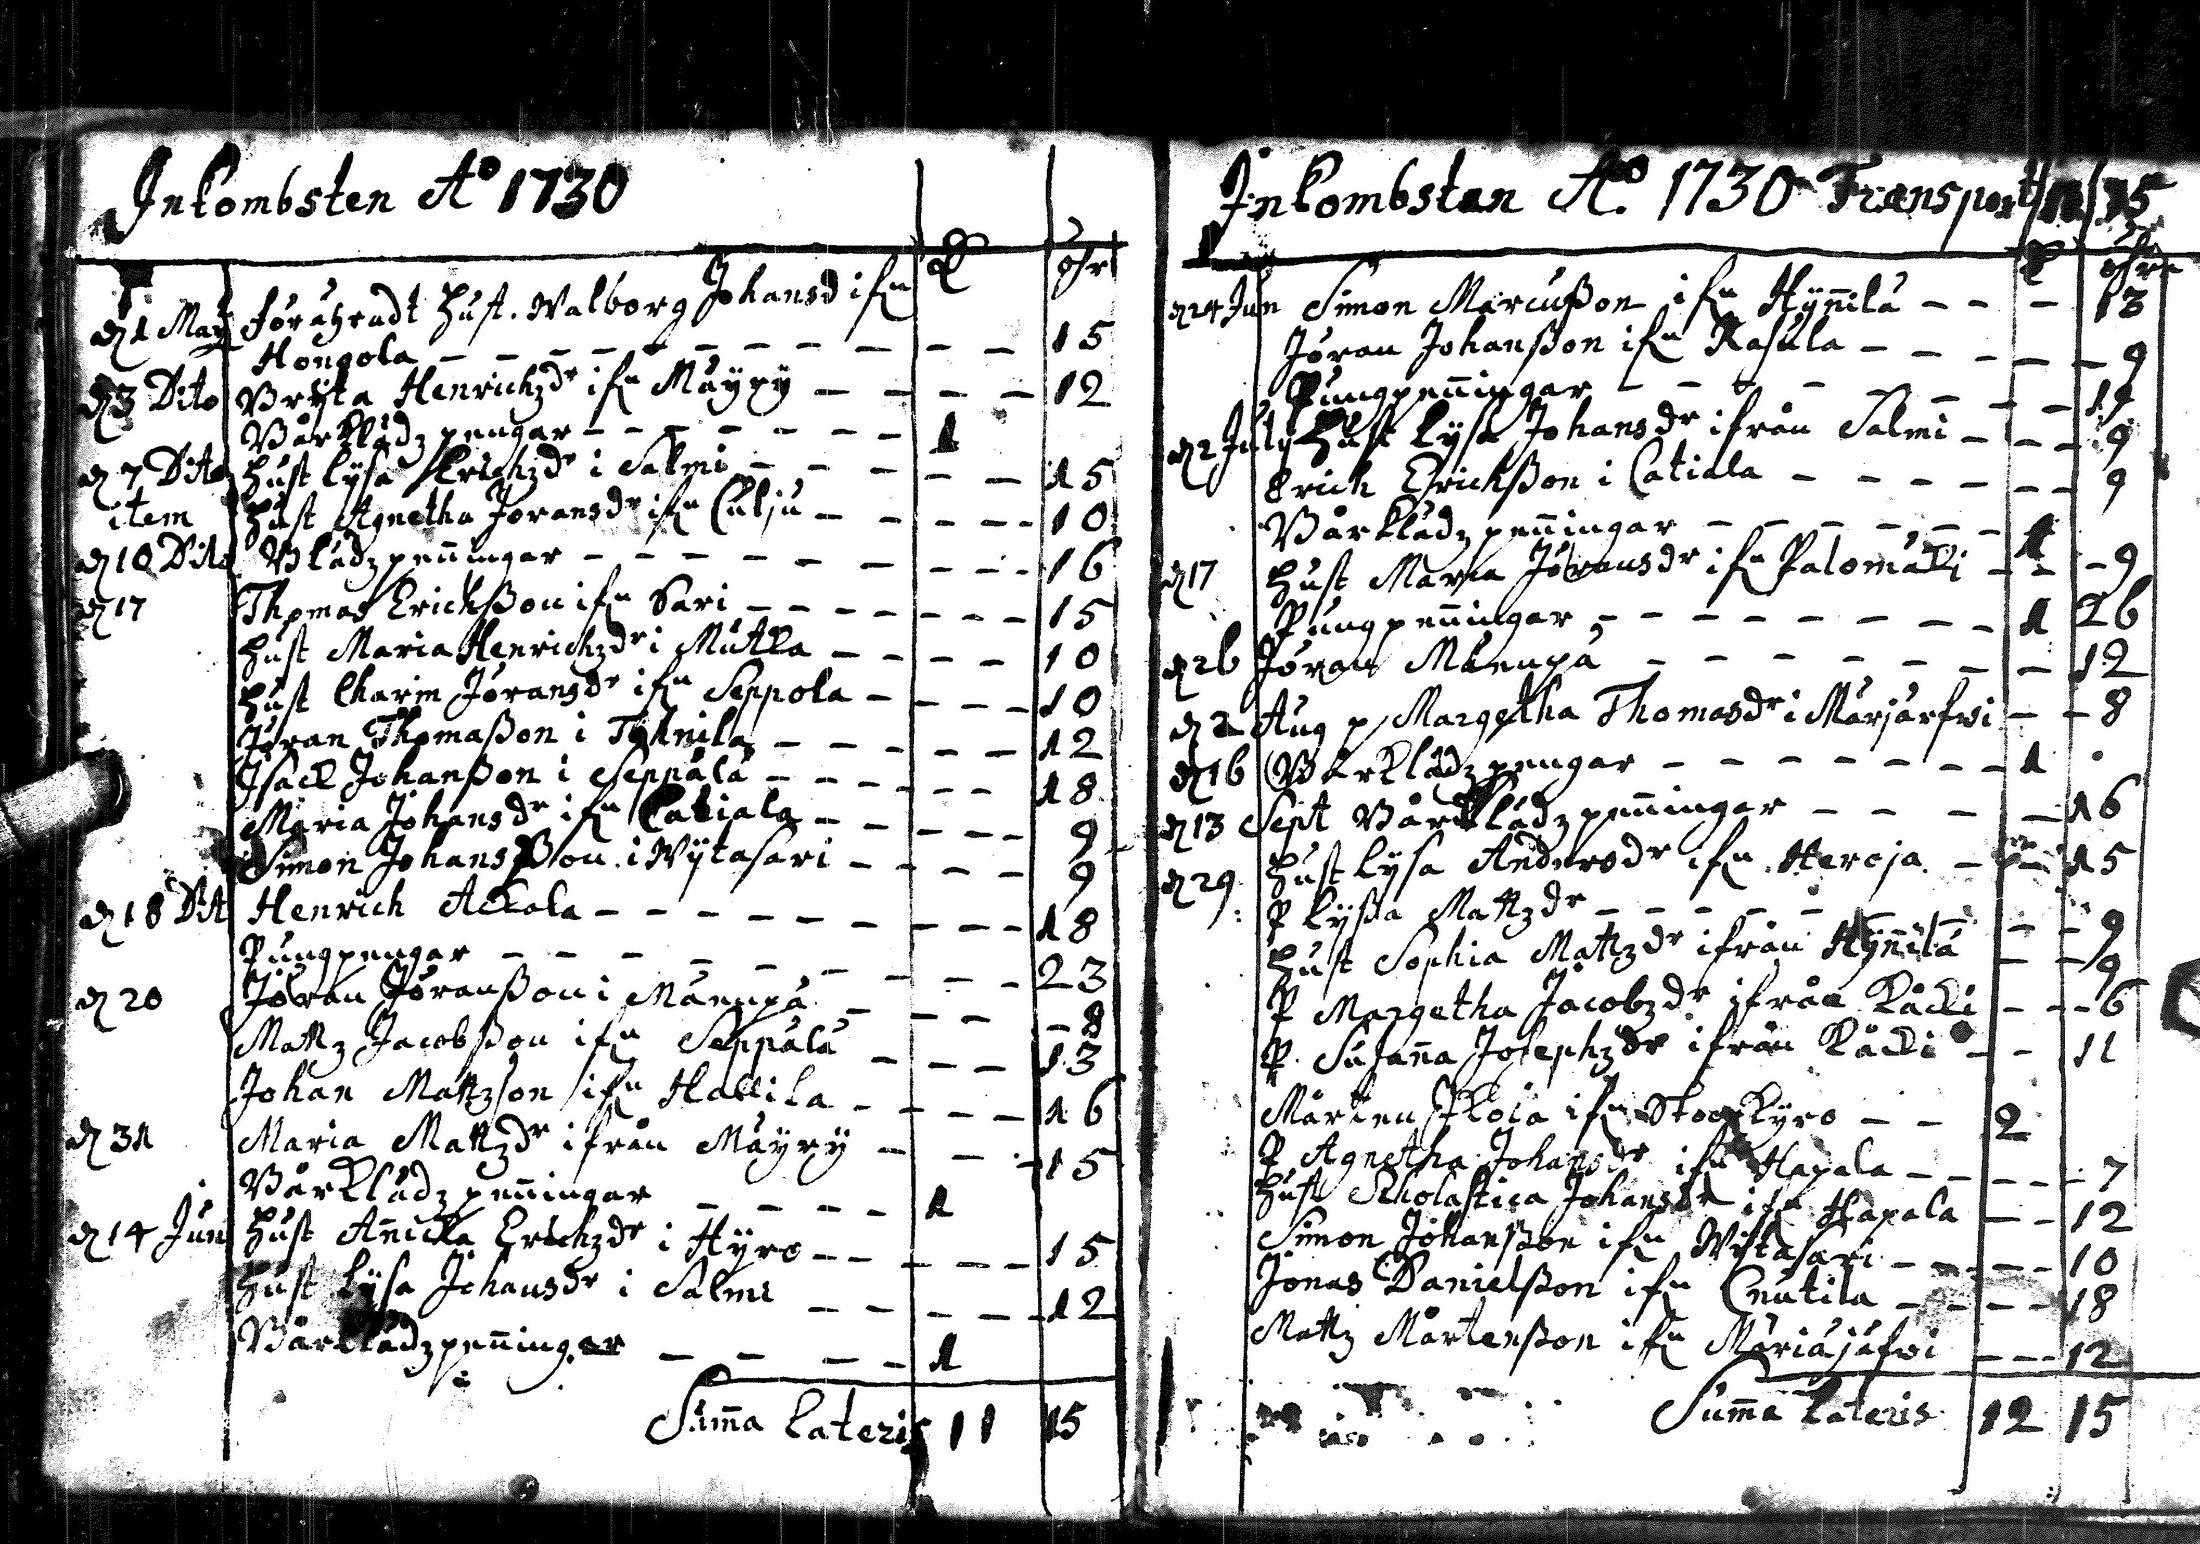 Inkombsten Aº 1730
öhr
d 1 Maij förähradt Hust. Walborg Johansd ifn
Hongola — — — — — — — — 15
d 3 Dito Bryta Henrichzdr ifn Mäypy — — — — 12
Wårklädz pengar — — — — — — 1
d 7 Dito Hust Lysa Erichzdr i Salmi — — — — — 15
item Hust Agnetha Joransdr ifn Culju — — — — 10
d 10 Dito Wlädzpeñingar — — — — — — — 16
d 17 Thomas Erichßon ifn Sari — — — — — — 15
Hust Maria Henrichzdr i Mutka — — — — 10
Hust Charin Joransdr ifn Seppola — — — — 10
Jöran Thomaßon i — — — — — 12
Isack Johanßon i Seppälä — — — — — 18
Maria Johansdr ifn Catiala — — — — — 9
Simon Johansßon i Wytasari — — — — 9
d 18 Dit Henrich Ackola — — — — — — — — 18
Pungpengar — — — — — — — 23
d 20 Jöran Jöranßon i Mäenpä — — — — 8
Mattz Jacobßon ifn Seppälä — — — — 13
Johan Mattzson ifn Hallila — — — — 16
d 31 Maria Mattzdr ifrån Mäyry — — — 15
Wårklädz peñingar — — — — 1
d 14 Jun Hust Añicka Erichzdr i Hyro — — — — — 15
Hust Lysa Johansdr i Salmi — — — — — 12
Wårklädzpeñingar — — — — 1
Sum̃a Lateris 11 15
Inkombsten Aº. 1730 Transport 11 15
öhr
d 24 Jun Simon Marcußon ifn Hyñilä — — — 13
Jöran Johanßon ifn Rasula — — — — — 9
Pungpeñingar — — — — — — — 14
d 2 July Hust Lysa Johansdr ifrån Salmi — — — 9
Erich Erichßon i Catiala — — — — — — 9
Wårklädz peñingar — — — — — — 1
d 17 Hust Maria Jöransdr ifn Palomäki — — — 9
Pungpeñingar — — — — — — — 1 26
d 26 Jöran Mäenpä — — — — — — — 12
d 2 Aug p Margetha Thomasdr i Märjärfwi — — 8
d 16 Wårklädz pengar — — — — — — — 1
d 13 Sept Wårklädz peñingar — — — — — 16
Hust Lysa Andersdr ifn Heroja — — 15
d 29 P Lyßa Mattzdr — — — — — — — — 9
Hust Sophia Mattzdr ifrån Hyñilä — — 9
P Margetha Jacobzdr ifrån Käcki — — — 6
P. Susaña Josephzdr ifrån Käcki — — 11
Mårten Skoia ifn Storkyro — — 2
P Agnetha Johansdr ifn Hapala — — — — — 7
Hust Scholastica Johansdr ifn Hapala — — 12
Simon Johanßon ifn Wytasari — — — — — 10
Jonas Danielßon ifn Cnutila — — — — 18
Mattz Mårtenßon ifn Märiäjäfwi — — — 12
Sum̃a Lateris 12 15